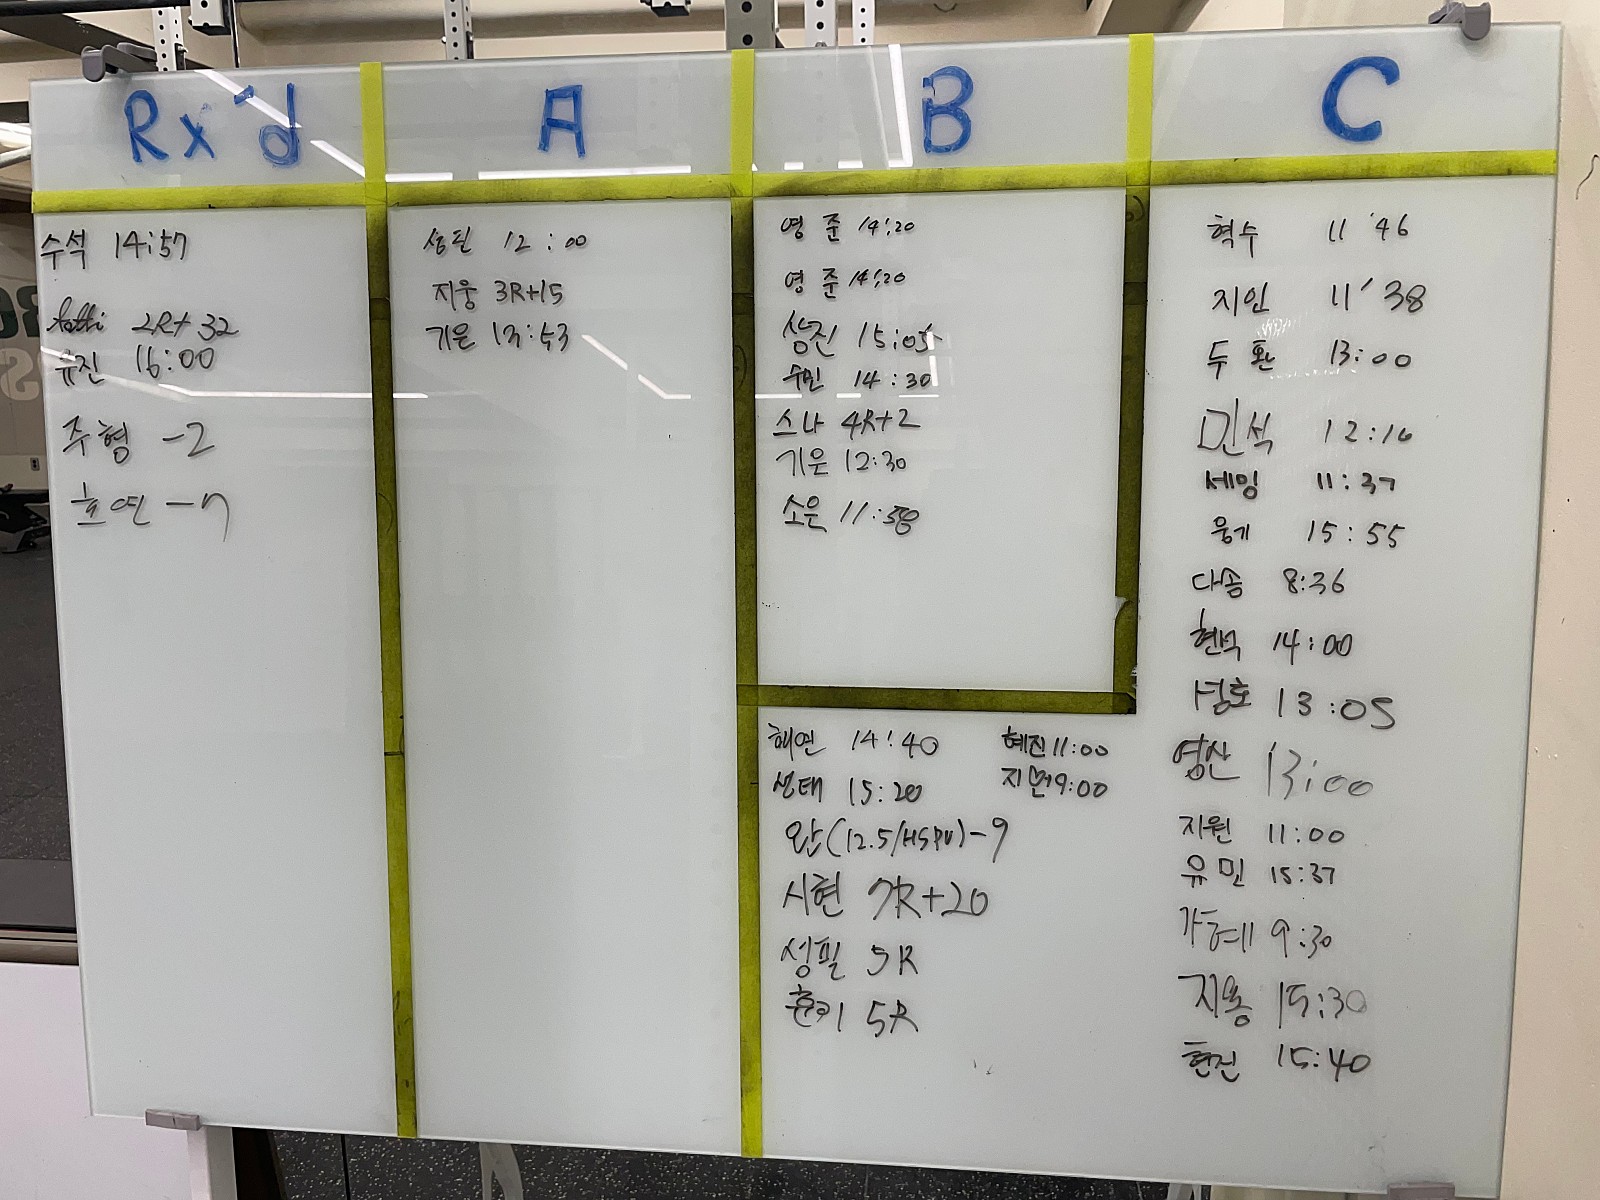 Rx'd
수석 14:57
2R+32
유진 16:00
주형 -2
호연 -7
A
성필 12:00
지웅 3R+15
기은 13:53
B
영준 14:20
영준 14:20
상진 15:05
수민 14:30
스나 4R+2
기은 12:30
소은 11:58
해연 14:40
혜진 11:00
성태 15:20
지현 9:00
완(12.5/HSPU)-9
시현 7R+20
성필 5R
훈키 5R
C
혁수 11'46
지인 11'38
두환 13:00
민석 12:16
세밍 11:37
웅기 15:55
다송 8:36
현석 14:00
성호 13:05
영산 13:00
지원 11:00
유민 15:37
가혜 9:30
지용 15:30
현진 15:40